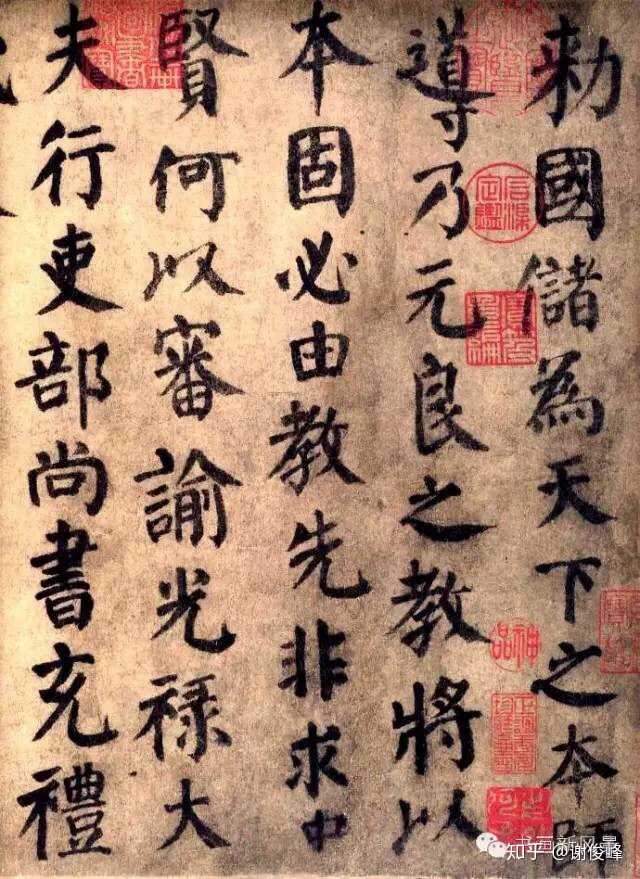 勑國儲為天下之本師
導乃元良之教將以
本固必由教先非求中
賢何以審諭光祿大
夫行吏部尚書充禮
神品
书画新风景
知乎 @谢俊峰